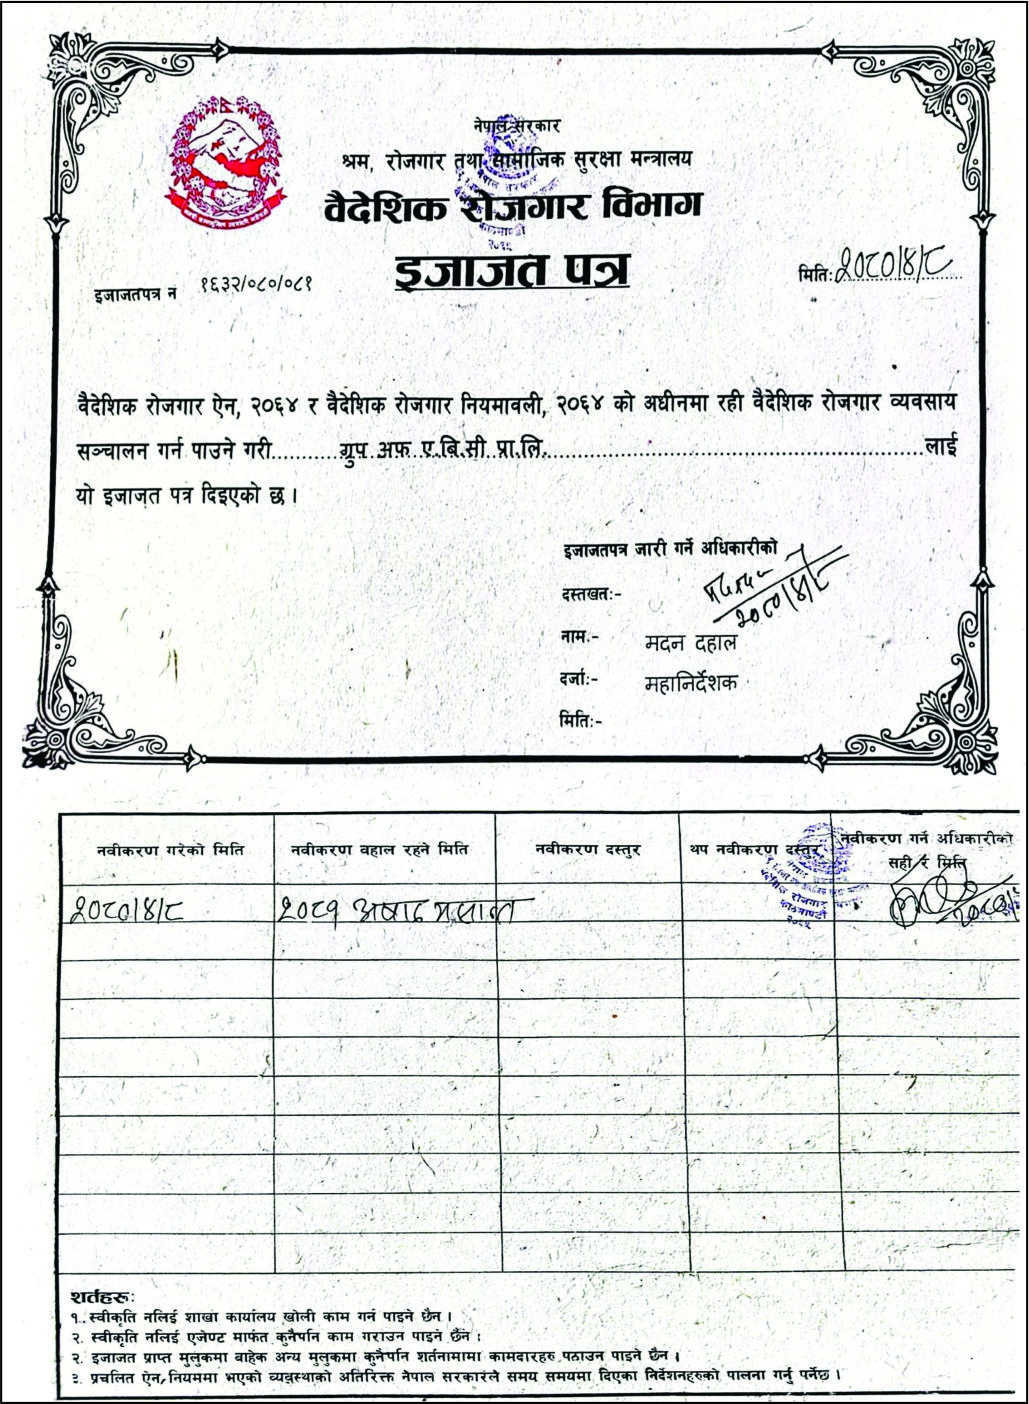 नेपाल सरकार
श्रम, रोजगार तथा सामाजिक सुरक्षा मन्त्रालय
वैदेशिक रोजगार विभाग
इजाजत पत्र
मिति: २०८०।४।८
इजाजतपत्र नं १६३२/०८०/०८१
वैदेशिक रोजगार ऐन, २०६४ र वैदेशिक रोजगार नियमावली, २०६४ को अधीनमा रही वैदेशिक रोजगार व्यवसाय
सञ्चालन गर्न पाउने गरी..........ग्रुप अफ ए.बि.सी प्रा.लि...........................................................लाई
यो इजाजत पत्र दिइएको छ ।
इजाजतपत्र जारी गर्ने अधिकारीको
दस्तखतः-
२०८०।४।८
नाम.-
मदन दहाल
दर्जाः-
महानिर्देशक
मितिः-
नवीकरण गरेको मिति नवीकरण वहाल रहने मिति नवीकरण दस्तुर थप नवीकरण दस्तुर नवीकरण गर्ने अधिकारीको
सही र मिति
२०८०।४।८ २०८१ अषाढ मसान्त
शर्तहरू:
१. स्वीकृति नलिई शाखा कार्यालय खोली काम गर्न पाइने छैन ।
२. स्वीकृति नलिई एजेण्ट मार्फत कुनैपनि काम गराउन पाइने छैन ।
२. इजाजत प्राप्त मुलुकमा बाहेक अन्य मुलुकमा कुनैपनि शर्तनामामा कामदारहरु पठाउन पाइने छैन ।
३. प्रचलित ऐन, नियममा भएको व्यवस्थाको अतिरिक्त नेपाल सरकारले समय समयमा दिएका निर्देशनहरुको पालना गर्नु पर्नेछ ।